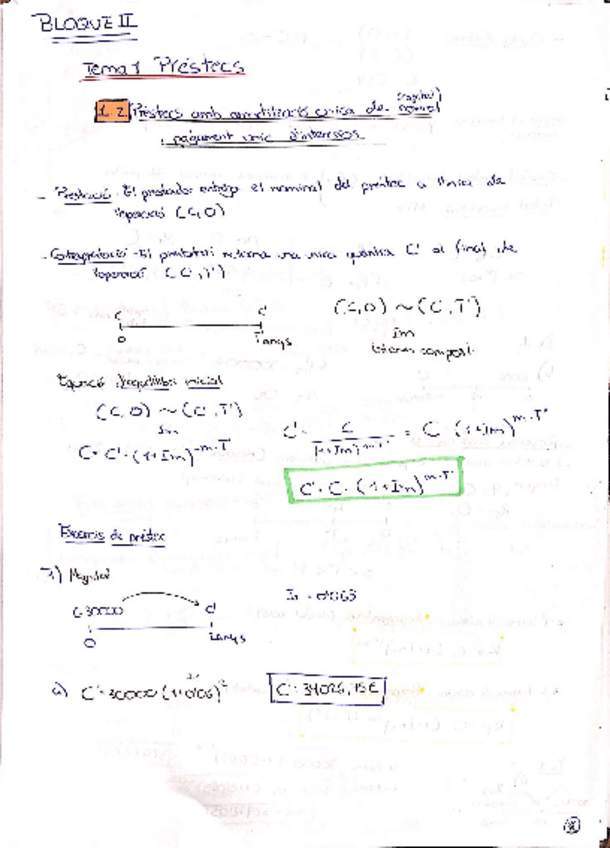 BLOQUE II
Tema 1 Préstecs
1.2 Préstecs amb amortització única de (capital) nominal
i pagament únic d'interessos
- Prestació - El prestador entrega el nominal del préstec a l'inici de
l'operació (C, 0)
- Contraprestació - El prestatari retorna una única quantia C' al final de
l'operació (C', T')
C C'
0 T' anys
(C, 0) ~ (C', T')
Im
interès compost
Equació d'equilibri inicial
(C, 0) ~ (C', T')
Im
C = C' · (1+Im)^-m·T'
C' = C / (1+Im)^-m·T' = C · (1+Im)^m·T'
C' = C · (1+Im)^m·T'
Exercicis de préstec
C=30000 C'
0 2 anys
a) C' = 30000
C' = 34026,75€